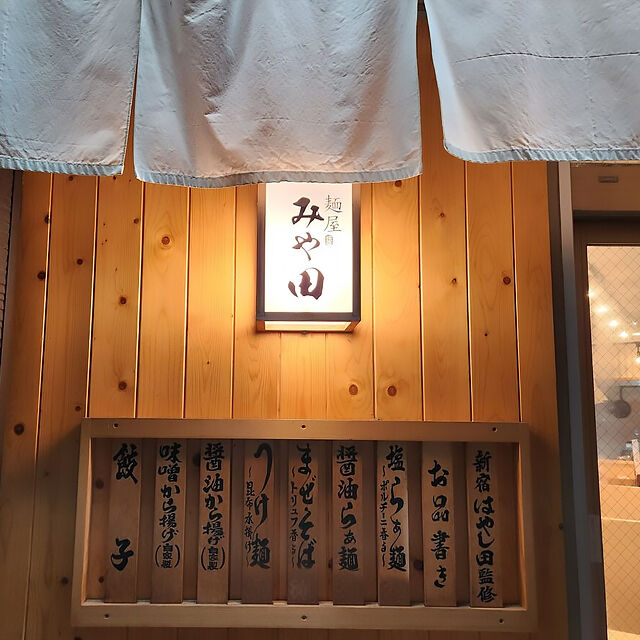 麺屋
みや田
新宿はやし田監修
お品書き
塩らぁ麺
～ポルチーニ香る～
醤油らぁ麺
まぜそば
～トリュフ香る～
つけ麺
～昆布水掛け～
醤油から揚げ(自家製)
味噌から揚げ(自家製)
餃子